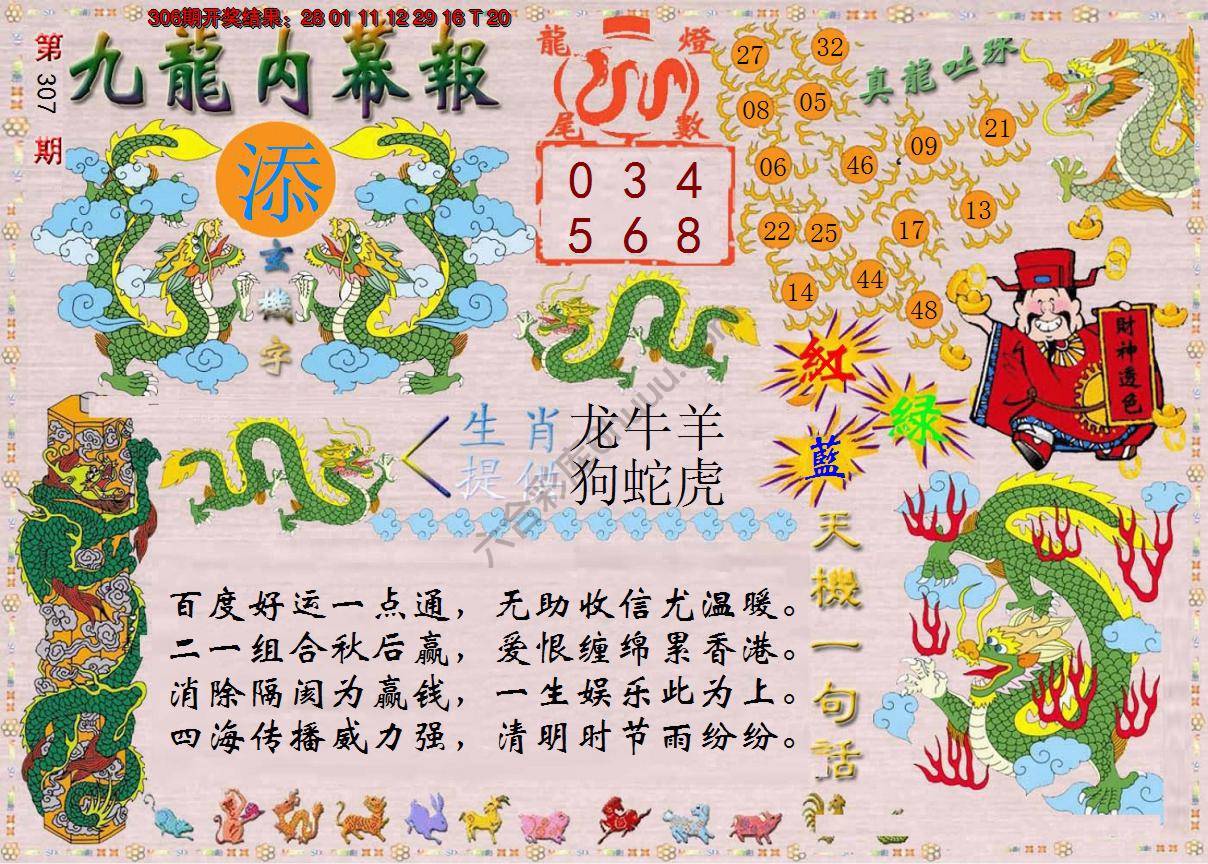 306期开奖结果：28 01 11 12 29 16 T 20
第307期
九龍内幕報
添
玄機字
龍燈尾數
0 3 4
5 6 8
真龍吐珠
27 32
08 05
09 21
06 46
22 25 17 13
14 44 48
財神透色
紅
綠
藍
生肖 龙牛羊
提供 狗蛇虎
六合彩库
天機一句話
百度好运一点通，无助收信尤温暖。
二一组合秋后赢，爱恨缠绵累香港。
消除隔阂为赢钱，一生娱乐此为上。
四海传播威力强，清明时节雨纷纷。